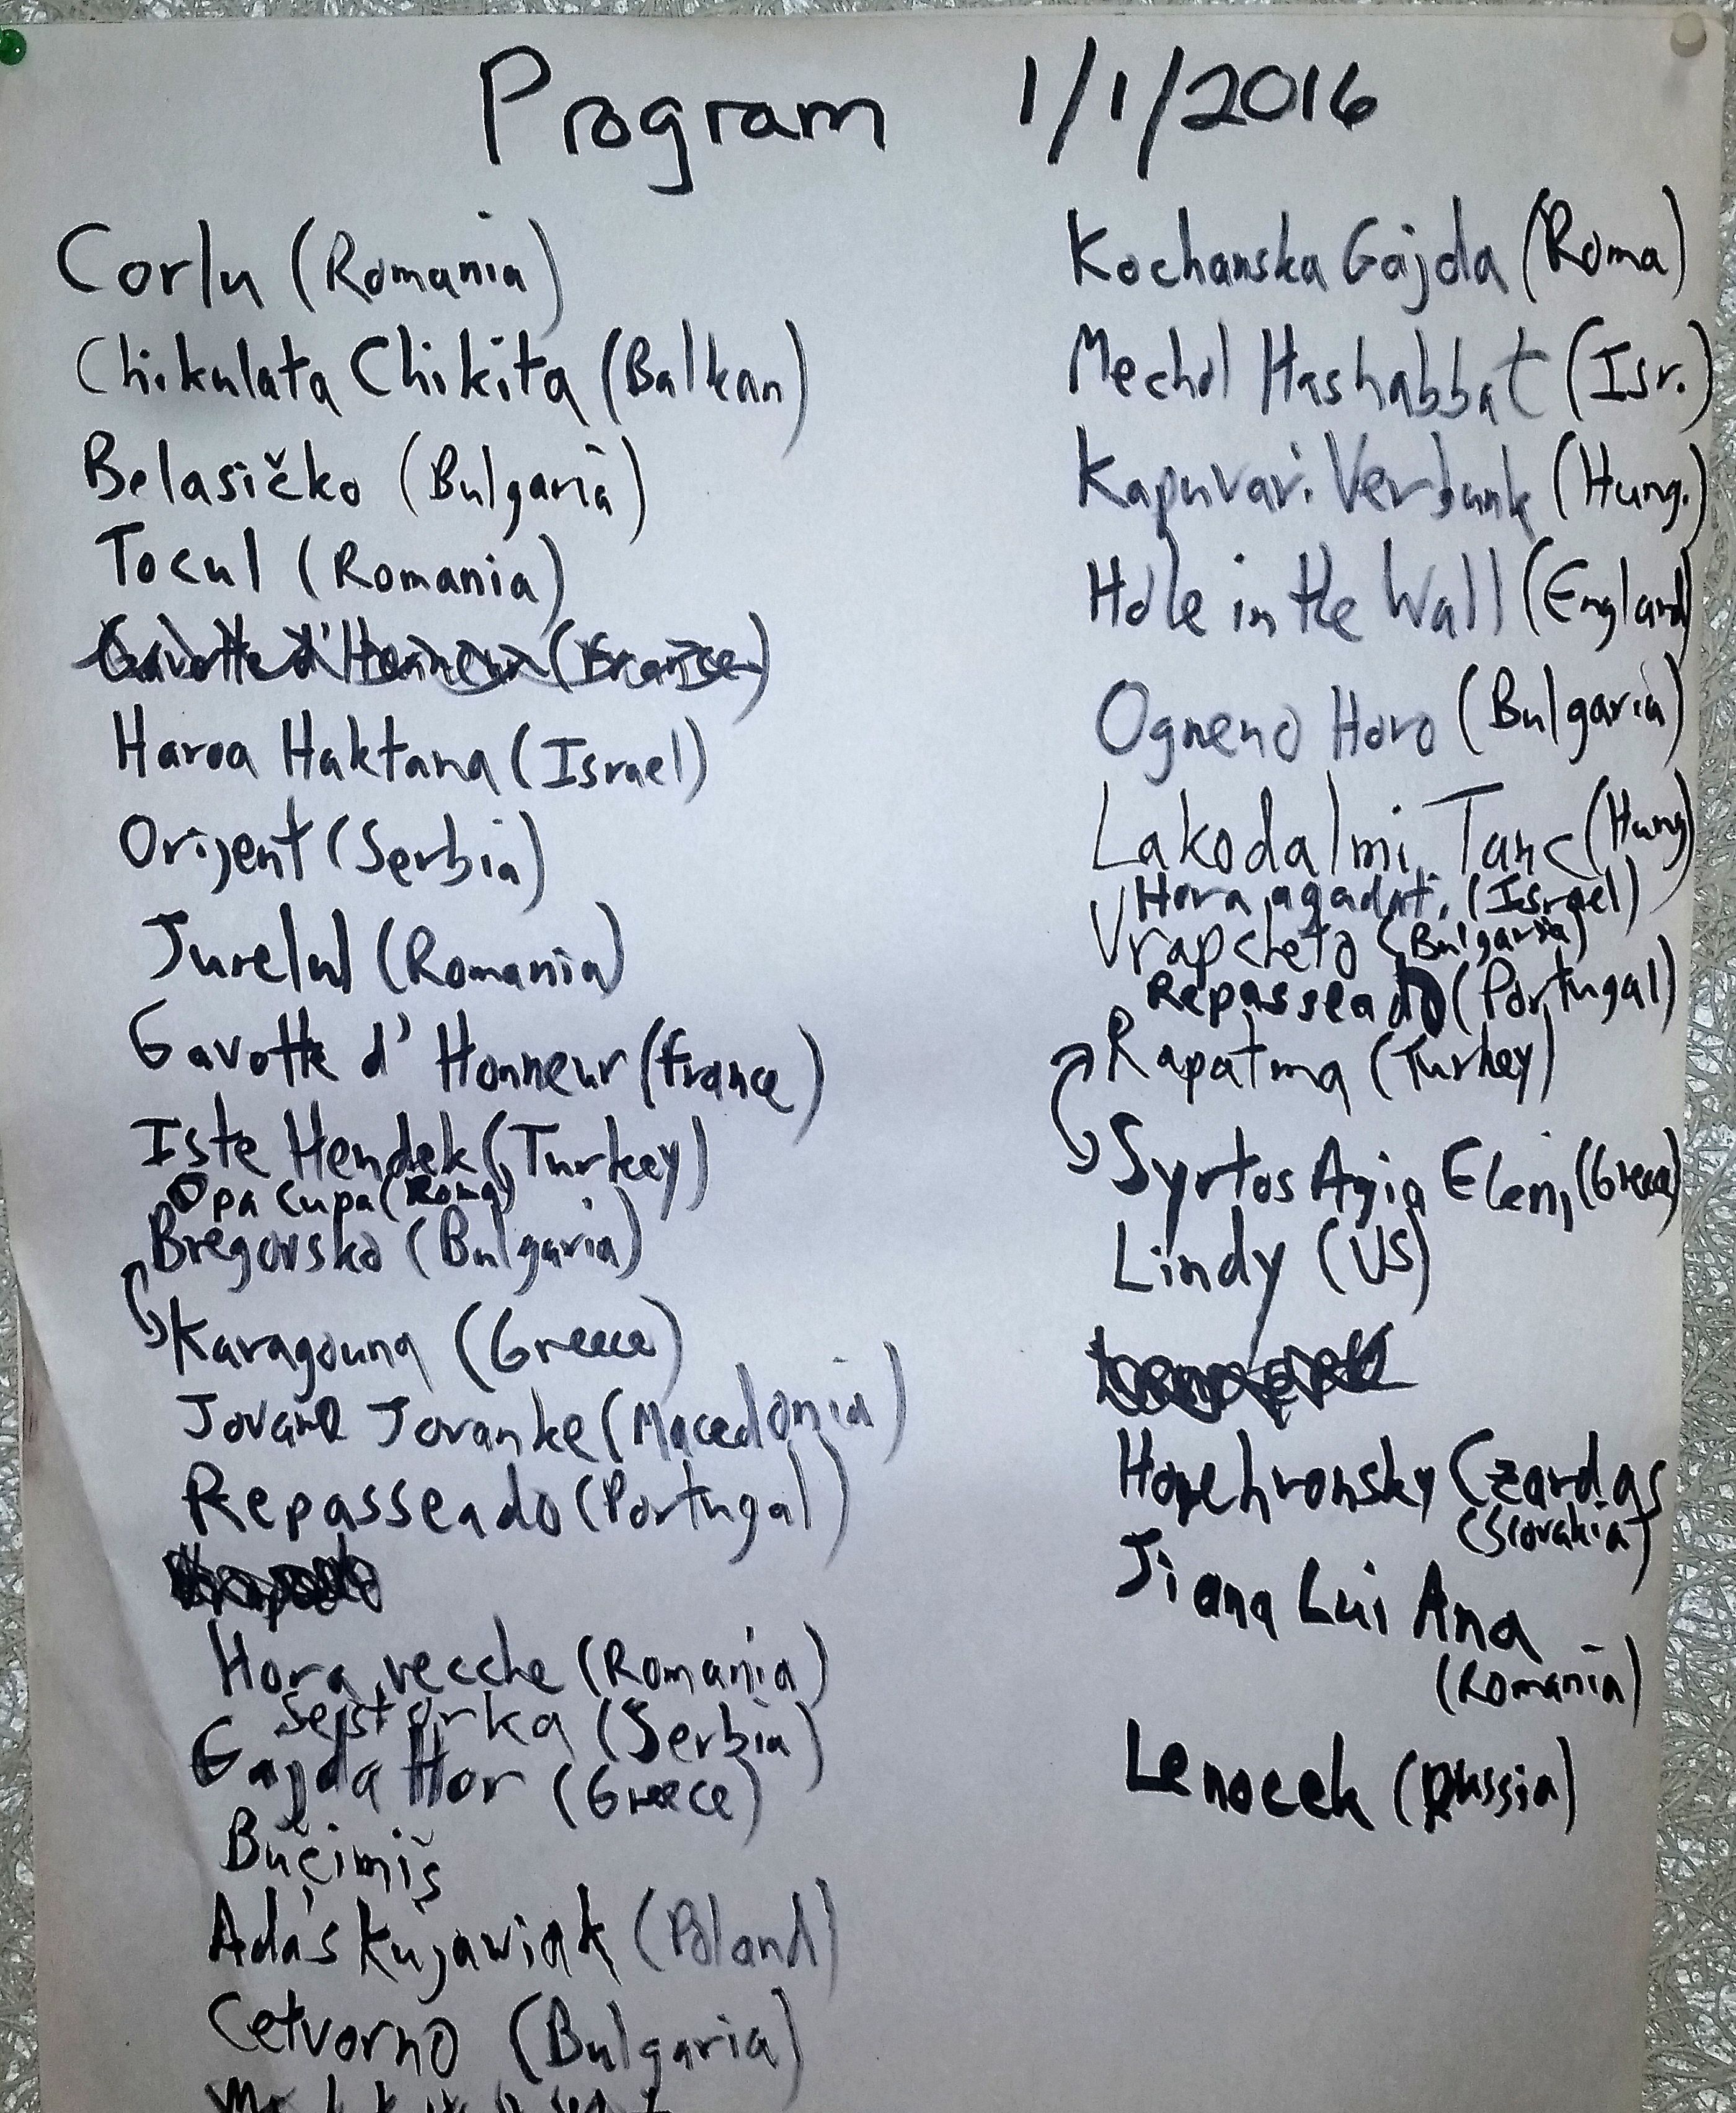 Program 1/1/2016
Corlu (Romania)
Chikulata Chikita (Balkan)
Belasičko (Bulgaria)
Tocul (Romania)
Gavotte d'Honneur (France)
Haroa Haktana (Israel)
Orijent (Serbia)
Jurelul (Romania)
Gavotte d' Honneur (France)
Iste Hendek (Turkey)
Opa Cupa (Roma)
Bregovsko (Bulgaria)
Karagouna (Greece)
Jovano Jovanke (Macedonia)
Repasseado (Portugal)
Hora vecche (Romania)
Sejstorka (Serbia)
Gajda Hor (Greece)
Bučimiš
Ada's Kujawiak (Poland)
Cetvorno (Bulgaria)
Kochanska Gajda (Roma)
Mechol Hashabbat (Isr.)
Kapuvari Verbunk (Hung.)
Hole in the Wall (England)
Ogneno Horo (Bulgaria)
Lakodalmi Tanc (Hung)
Hora agadati (Israel)
Vrapcheto (Bulgaria)
Repasseado (Portugal)
Rapatma (Turkey)
Syrtos Agia Eleni (Greece)
Lindy (US)
Horehronsky Czardas
(Slovakia)
Jiana Lui Ana
(Romania)
Lenocek (Russia)